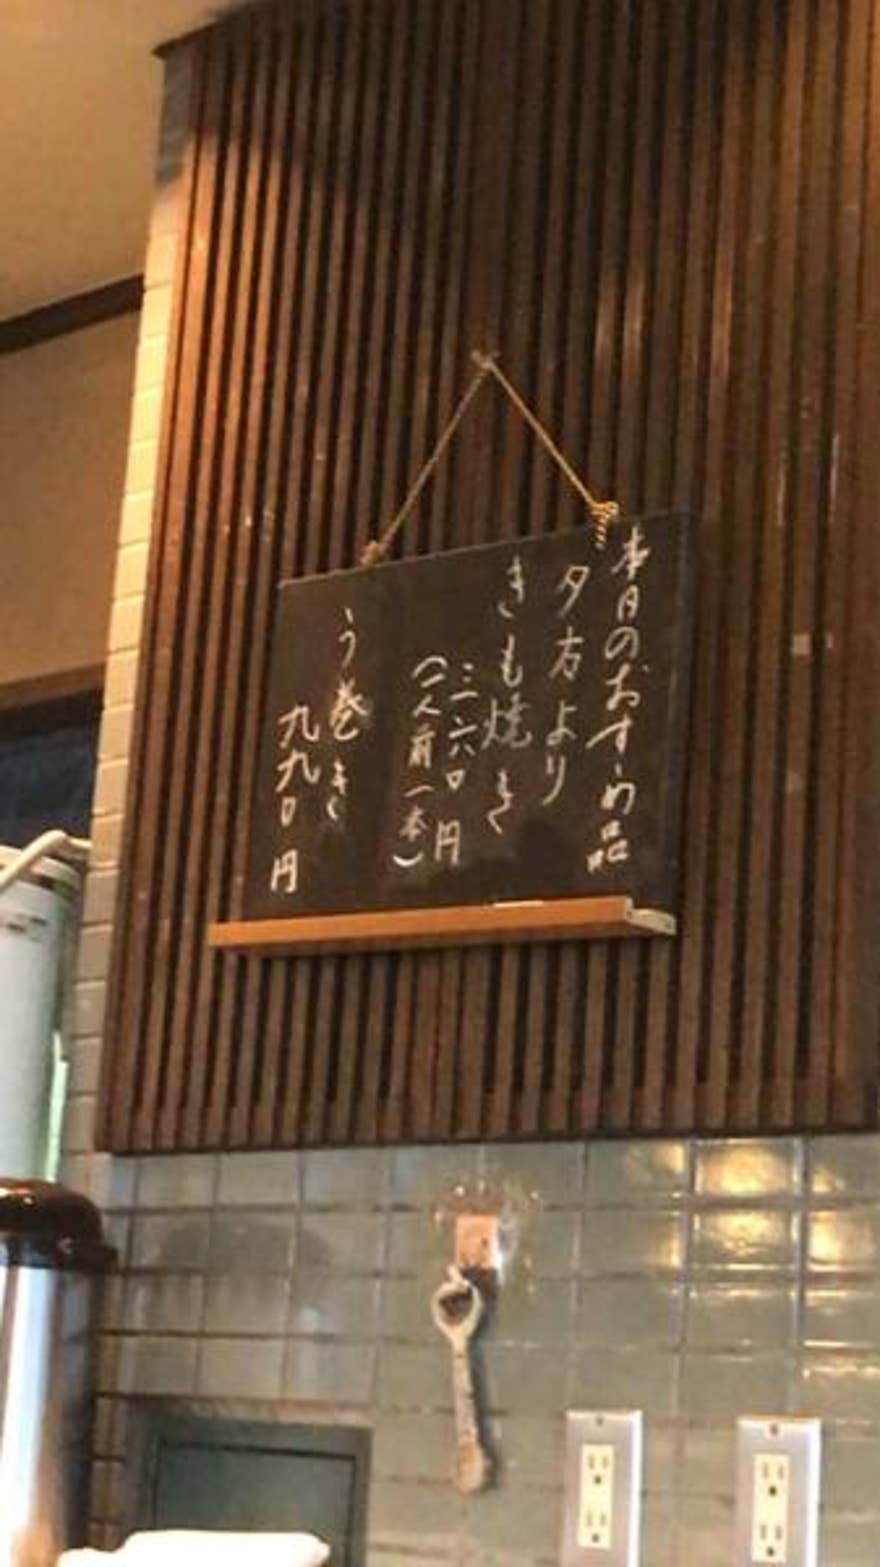 本日のおすすめ品
夕方より
きも焼き
三六〇円
(一人前一本)
う巻き
九九〇円